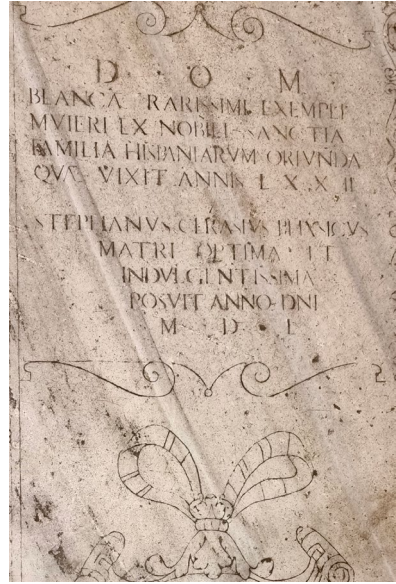 D O M
BLANCÆ RARISSIMI EXEMPLI
MVIERI EX NOBILI SANCTIA
FAMILIA HISPANIARVM ORIVNDA
QVÆ VIXIT ANNIS LXXII
STEPHANVS CERASIVS PHYSICVS
MATRI OPTIMÆ ET
INDVLGENTISSIMÆ
POSVIT ANNO DNI
M D L